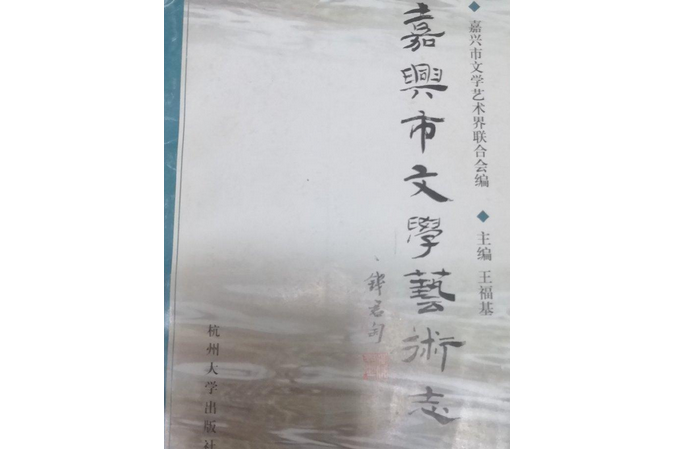 嘉兴市文学艺术界联合会编
主编 王福基
嘉興市文學藝術志
钱君匋
杭州大学出版社